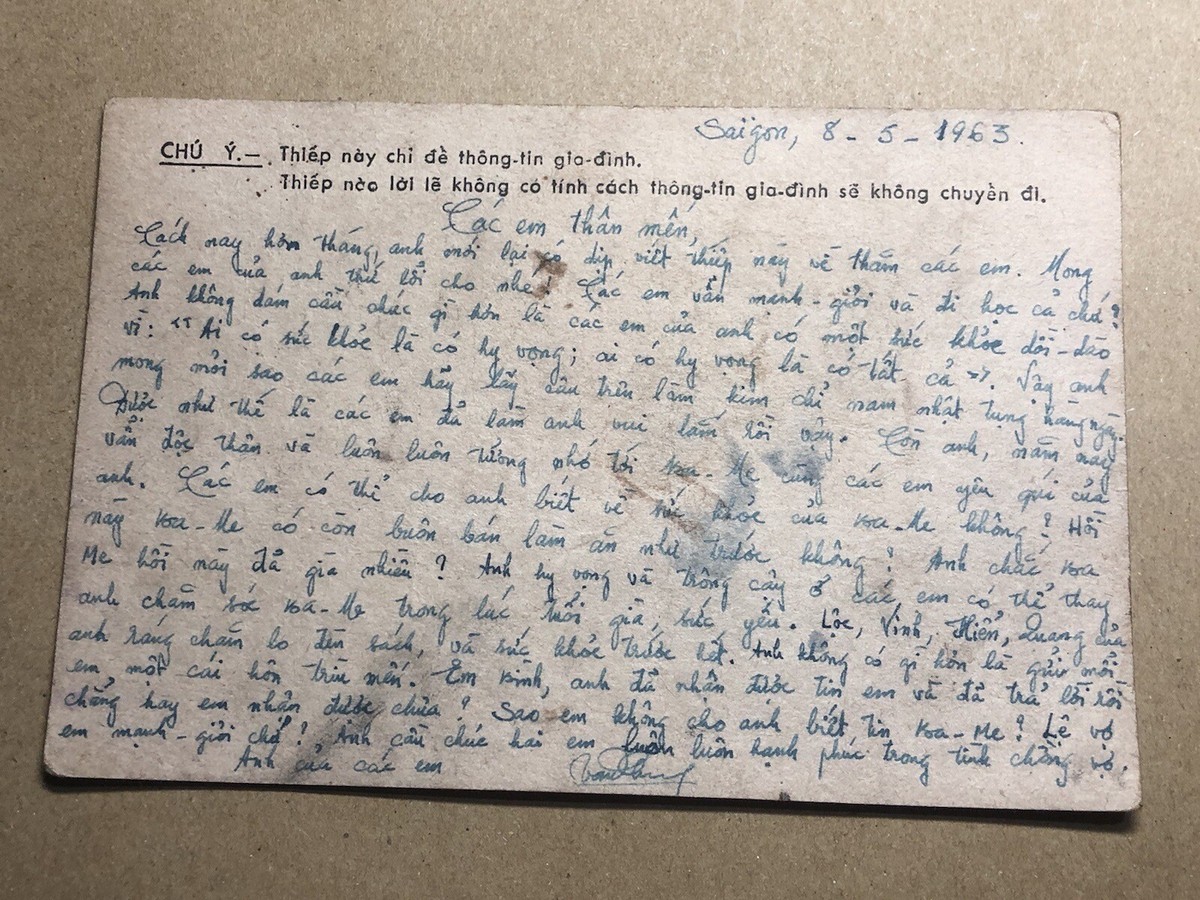 Saigon, 8 - 5 - 1963.
CHÚ Ý.— Thiếp này chỉ để thông-tin gia-đình.
Thiếp nào lời lẽ không có tính cách thông-tin gia-đình sẽ không chuyển đi.
Các em thân mến,
Cách nay hơn tháng, anh mới lại có dịp viết thiếp này về thăm các em. Mong
các em của anh thứ lỗi cho nhé! Các em vẫn mạnh-giỏi và đi học cả chứ?
Anh không dám cầu chúc gì hơn là các em của anh có một sức khỏe dồi-dào
vì: "Ai có sức khỏe là có hy vọng; ai có hy vọng là có tất cả". Vậy anh
mong mỏi sao các em hãy lấy câu trên làm kim chỉ nam nhật tụng hàng ngày.
Được như thế là các em đã làm anh vui lắm rồi vậy. Còn anh, năm nay
vẫn độc thân và luôn luôn tưởng nhớ tới Ba-Me cùng các em yêu quí của
anh. Các em có thể cho anh biết về sức khỏe của Ba-Me không? Hồi
này Ba-Me có còn buôn bán làm ăn như trước không? Anh chắc Ba
Me hồi này đã già nhiều? Anh hy vọng và trông cậy ở các em có thể thay
anh chăm sóc Ba-Me trong lúc tuổi già, sức yếu. Lộc, Vinh, Hiển, Quang của
anh ráng chăm lo đèn sách, và sức khỏe trước hết. Anh không có gì hơn là gửi mỗi
em một cái hôn trìu mến. Em Bình, anh đã nhận được tin em và đã trả lời rồi
chẳng hay em nhận được chưa? Sao em không cho anh biết tin Ba-Me? Lệ vợ
em mạnh-giỏi chứ? Anh cầu chúc hai em luôn luôn hạnh phúc trong tình chồng vợ.
Anh của các em